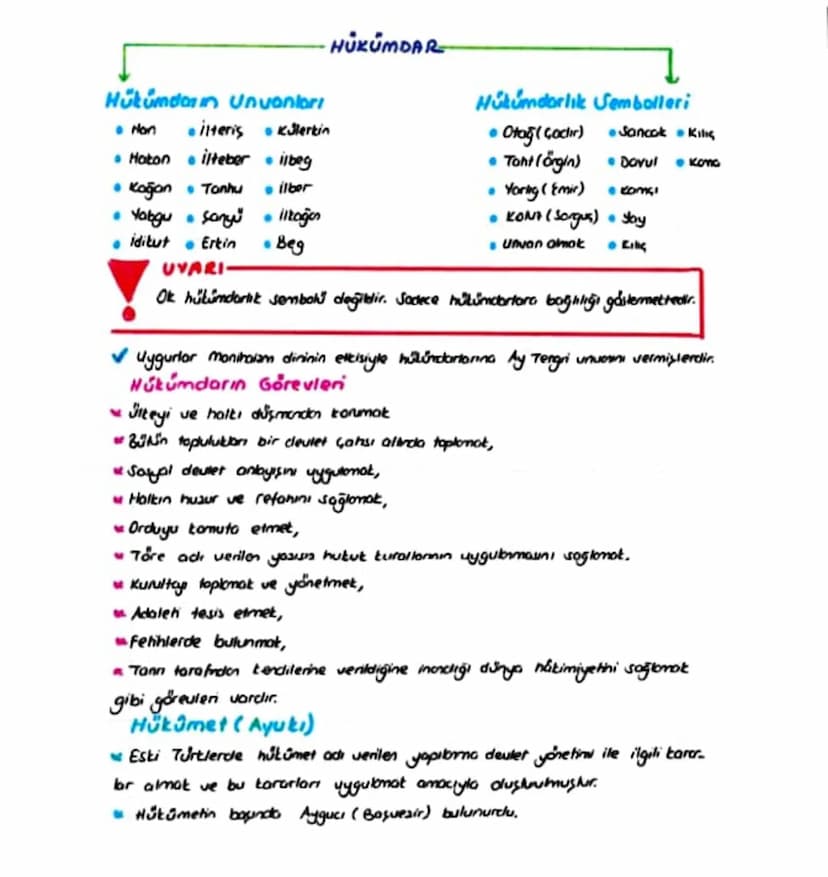 HÜKÜMDAR
Hükümdarın Unvanları
Hükümdarlık Sembolleri
• Han • İlteriş • Kültertin
• Otağ (Çadır) • Sancak • Kılıç
• Hakan • İlteber • İlbeg
• Taht (Örgin) • Davul
• Kağan • Tanhu • İlber
• Yarlıg (Emir) • Kamçı
• Yabgu • Şanyü • İlkağan
• Yay
• İdikut • Erkin • Beg
• Unvan almak • Kılıç
UYARI
Ok hükümdarlık sembolü değildir. Sadece hükümdarlara bağlılığı göstermektedir.
✓ Uygurlar Maniheizm dininin etkisiyle hükümdarlarına Ay Tengri unvanını vermişlerdir.
Hükümdarın Görevleri
Ülkeyi ve halkı düşmandan korumak
Bütün toplulukları bir devlet çatısı altında toplamak,
Sosyal devlet anlayışını uygulamak,
Halkın huzur ve refahını sağlamak,
Orduyu komuta etmek,
Töre adı verilen yasısız hukuk kurallarının uygulanmasını sağlamak.
Kurultay toplamak ve yönetmek,
Adaleti tesis etmek,
Fetihlerde bulunmak,
Tanrı tarafından kendilerine verildiğine inandığı dünya hâkimiyetini sağlamak
gibi görevleri vardır.
Hükümet (Ayukı)
Eski Türklerde hükümet adı verilen yapılanma devlet yönetimi ile ilgili karar-
lar almak ve bu kararları uygulamak amacıyla oluşturulmuştur.
Hükümetin başında Aygucı (Başvezir) bulunurdu.